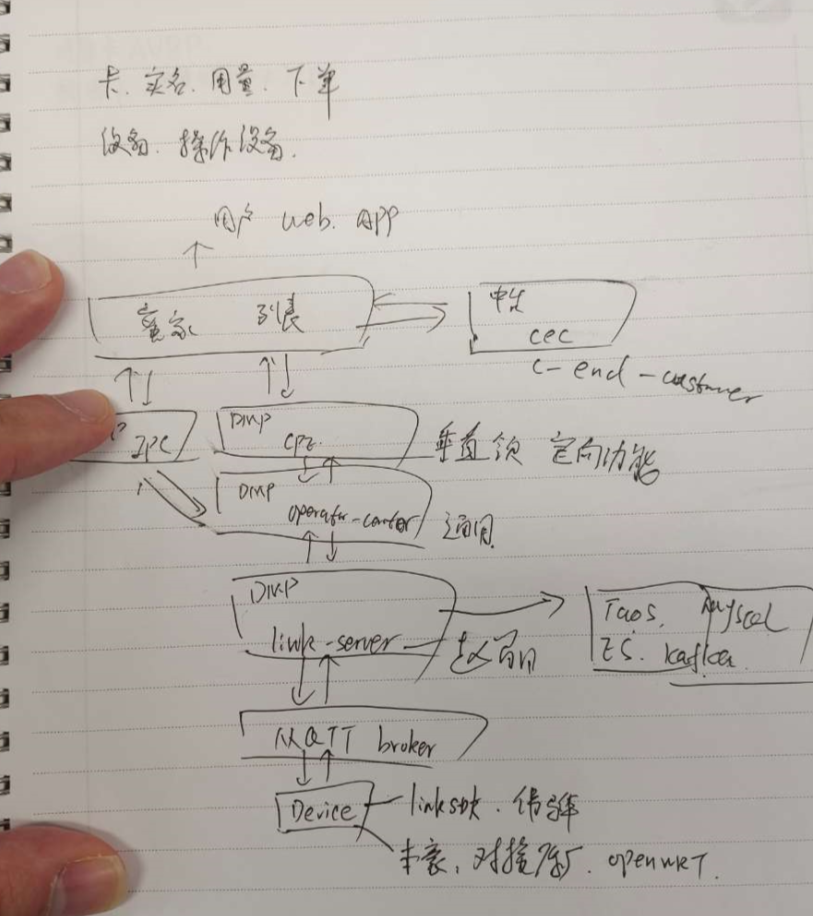 卡、实名、用量、下单
设备、操作设备.
用户 web. APP
列表
中心
cec
c-end-customer
IPC
DMP
CPE.
垂直领 定向功能
DMP
operator-center
通用
DMP
link-server
Taos. Mysql
ES. kafka.
MQTT broker
Device
linksdk.
对接 openWRT.